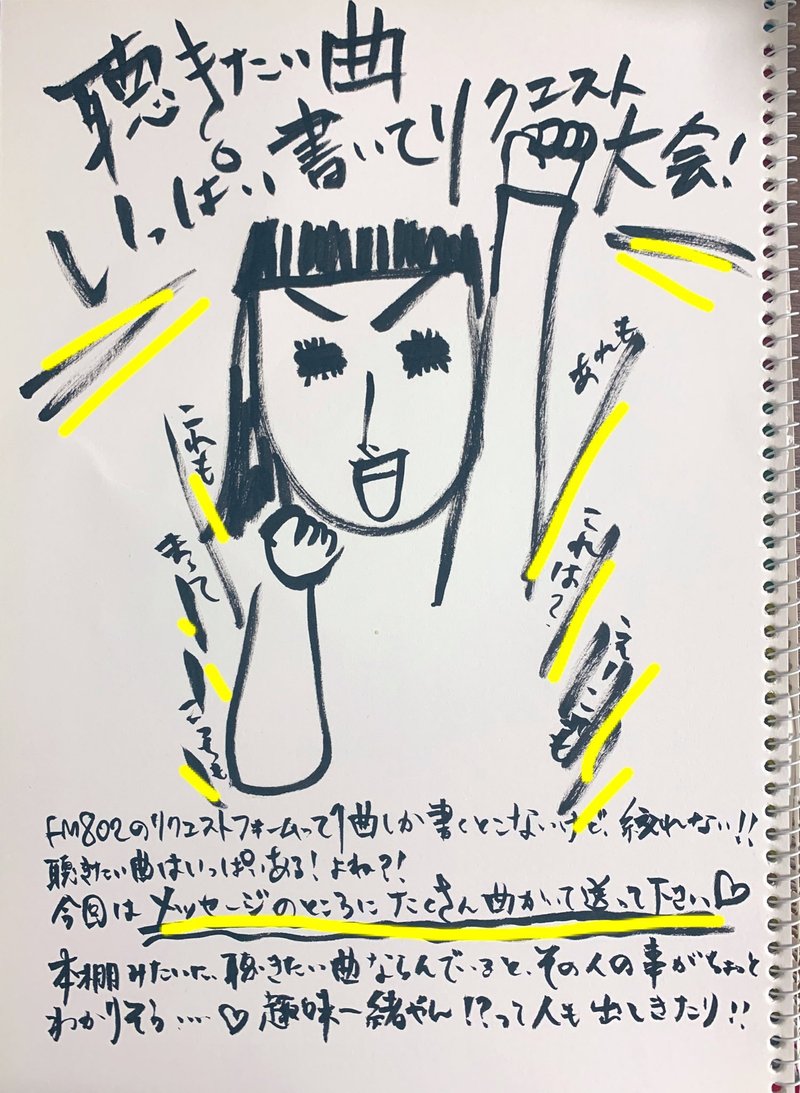 聴きたい曲
いっぱい書いてリクエスト
大会!
あれも
これも
これは?
まって
FM802のリクエストフォームって1曲しか書くとこないけど、絞れない!!
聴きたい曲はいっぱいある!よね?!
今回はメッセージのところにたくさん曲かいて送って下さい♡
本棚みたいに、聴きたい曲ならんでいると、その人の事がちょっと
わかりそう……♡ 趣味一緒やん!?って人も出てきたり!!